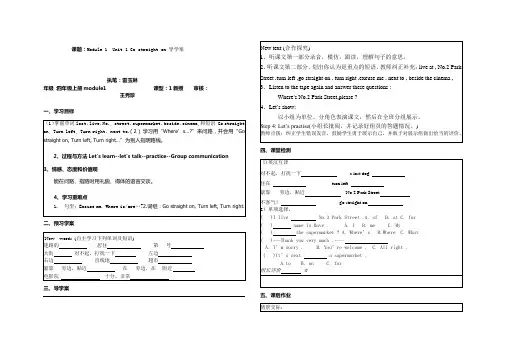 课题:Module 1  Unit 1 Go straight on 导学案
执笔:雷玉琳
年级 四年级上册module1 课型:1新授 审核:
王秀珍
一、学习目标
on, Turn left, Turn right, next to.( 2 ) 学习用“Where’s…?”来问路,并会用“Go
straight on, Turn left, Turn right…”为别人指明路线。
2、过程与方法 Let's learn--let's talk--practice--Group communication
3、情感、态度和价值观
能在问路、指路时用礼貌、得体的语言交谈。
4、学习重难点
1. 句型:Excuse me. Where is/are…?2.词组:Go straight on, Turn left, Turn right.
二、预习学案
New words (自主学习下列单词及短语)
迷路的 居住 第 号
大街 对不起,打扰一下 左边
右边 直线地 超市
紧靠 旁边,贴近 在 旁边,在 附近
电影院 十分,非常
三、导学案
New text (合作探究)
1、听课文第一部分录音,模仿,跟读,理解句子的意思。
2、听课文第二部分,划出你认为是重点的短语。教师纠正补充: live at , No.2 Park
Street ,turn left ,go straight on , turn right ,excuse me , next to , beside the cinema ,
3、Listen to the tape again,and answer these questions :
Where's No.2 Park Street,please ?
4、Let's show:
以小组为单位,分角色表演课文,然后在全班分组展示。
Step 4: Let's practice(小组长批阅,并记录好组员的答题情况。)
教师点拨:纠正学生错误发音,鼓励学生勇于展示自己,并敢于对展示组做出恰当的评价。
四、课堂检测
1)英汉互译
对不起,打扰一下 a lost dog
住在 turn left
紧靠 旁边,贴近 No.2 Park Street
不客气! go straight on
2)单项选择:
( )I live No.3 Park Street .A. of B. at C. for
( ) name is Dave . A. I B. me C. My
( ) the supermarket ? A. Where's B. Where C. What
( )---Thank you very much . ---
A. I'm sorry . B. You're welcome . C. All right .
( )It's next a supermarket .
A.to B. on C. for
五、课后作业